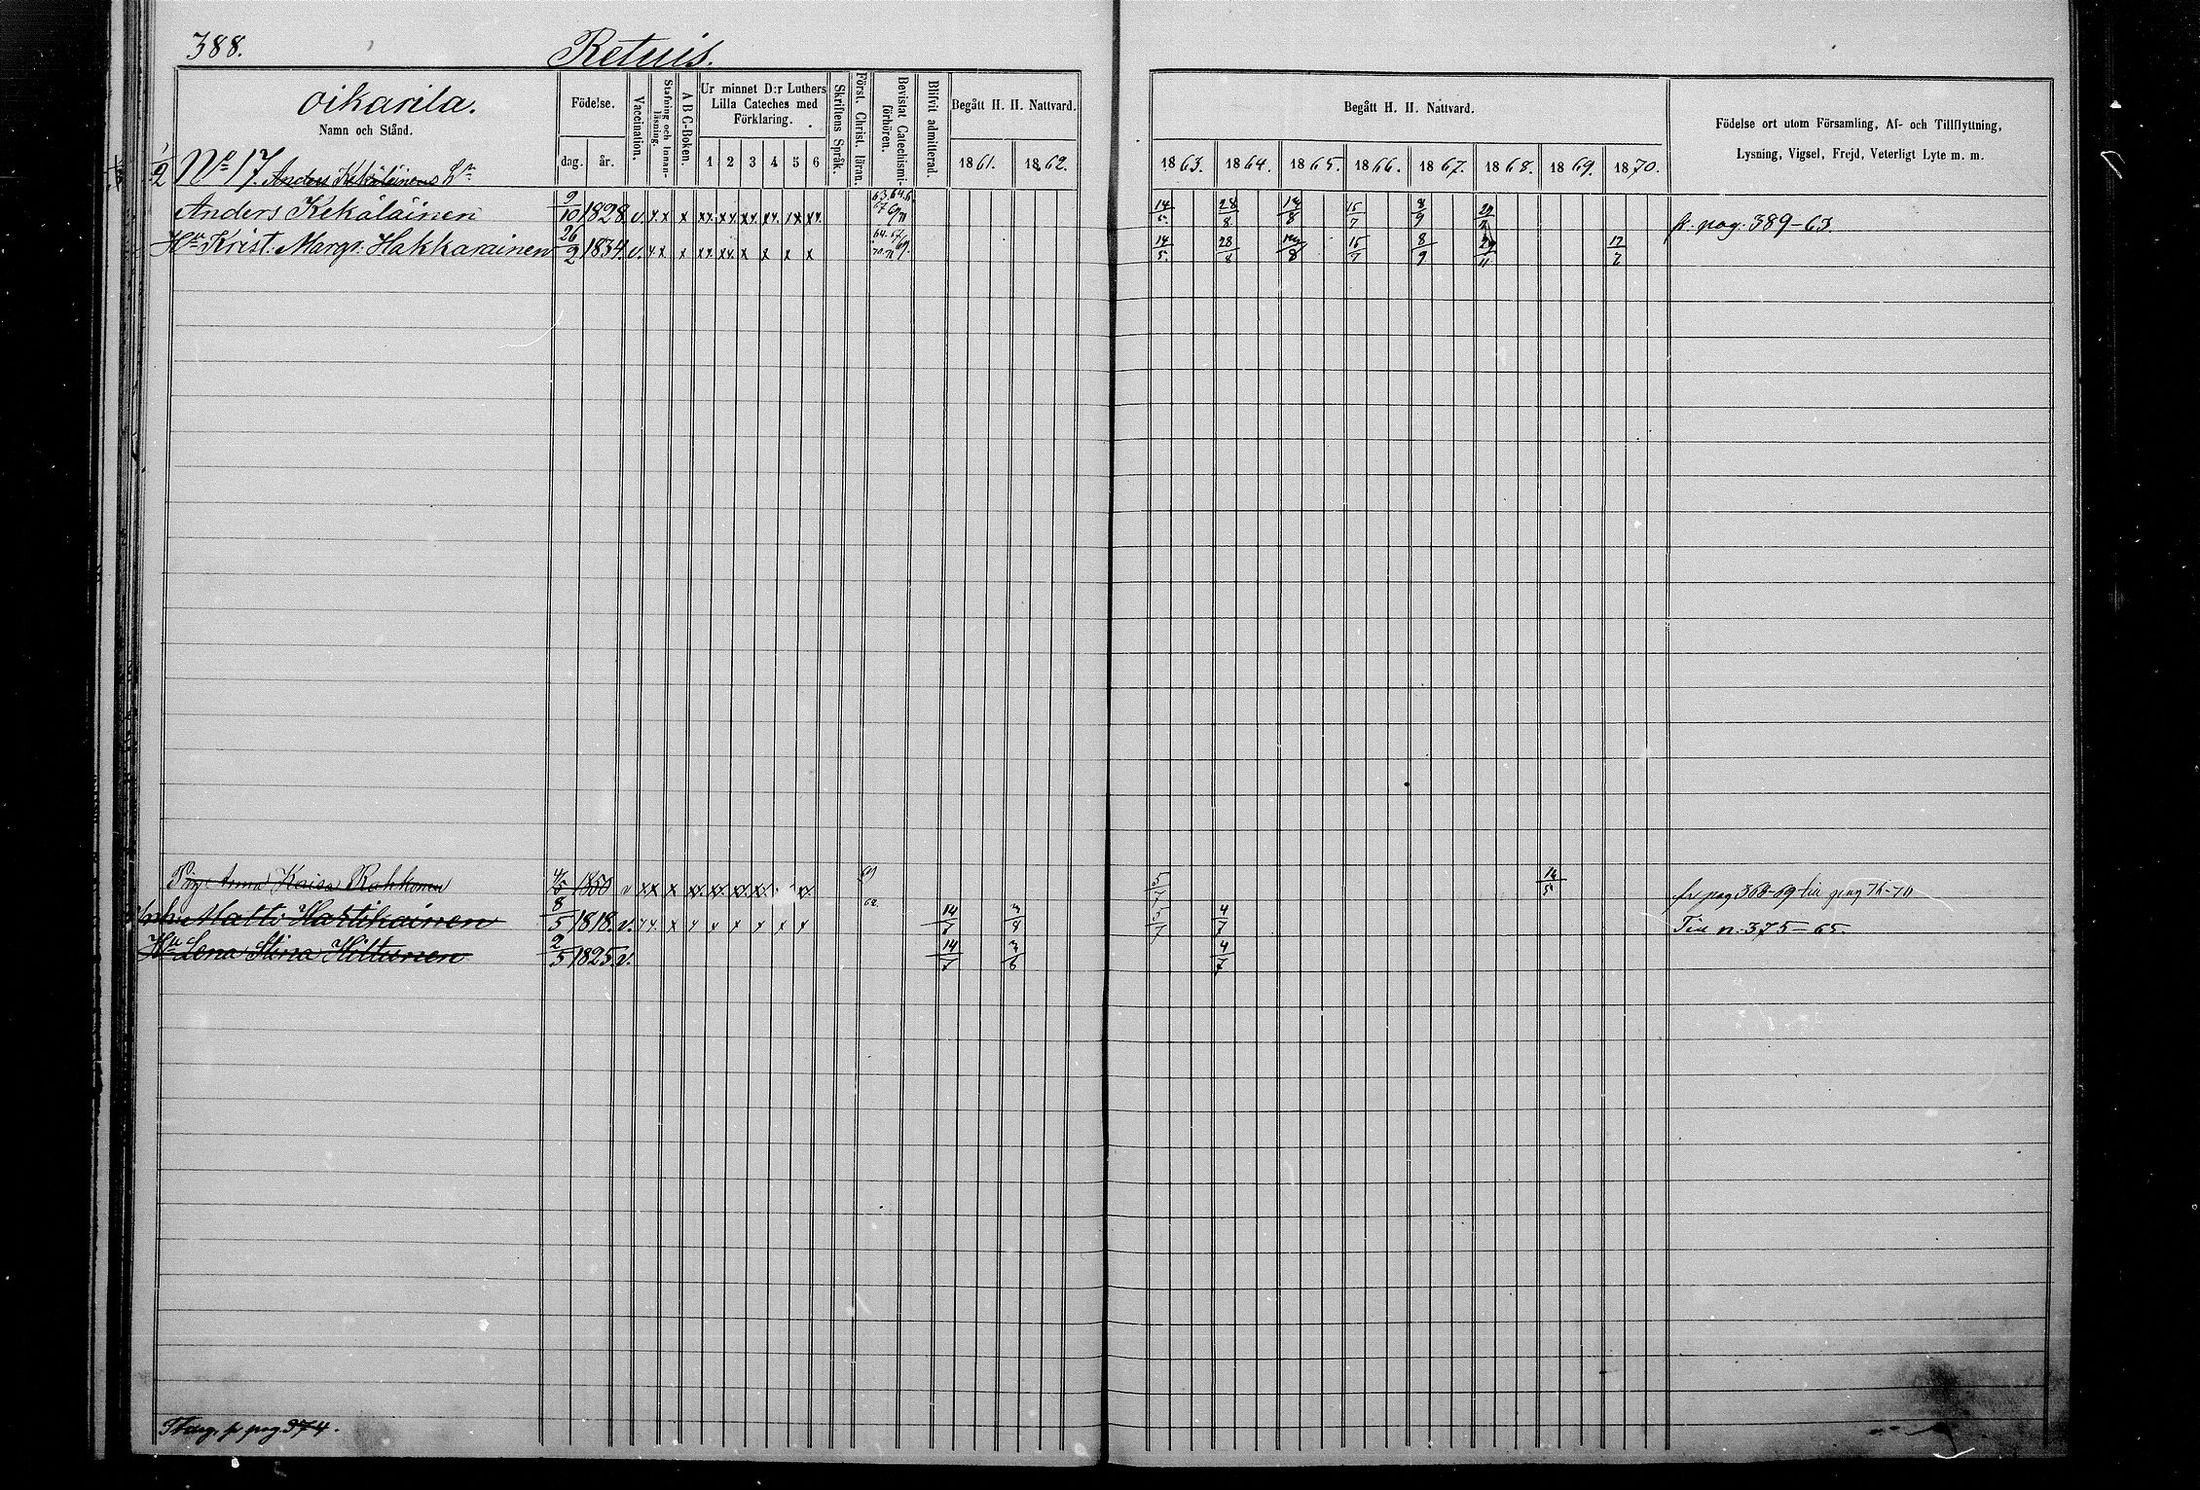 388.
Retuis.
Oikarila.
Namn och Stånd.
Födelse.
dag. år.
Vaccination.
Stafning och Innan-läsning.
A B C-Boken.
Ur minnet D:r Luthers Lilla Cateches med Förklaring.
1 2 3 4 5 6
Skriftens Språk.
Först. Christ. läran.
Bevistat Catechismi-förhören.
Blifvit admitterad.
Begått H. H. Nattvard.
1861. 1862.
Begått H. H. Nattvard.
1863. 1864. 1865. 1866. 1867. 1868. 1869. 1870.
Födelse ort utom Församling, Af- och Tillflyttning,
Lysning, Vigsel, Frejd, Veterligt Lyte m. m.
1/2 No 17. Anders Kekäläinens
Anders Kekäläinen 9/10 1828. v. x x x xx. xx. xx xx. xx xx. 14/5. 28/8 14/8 15/7 8/9 fr. pag. 389-63.
Hu Krist. Margr. Hakkarainen 26/2 1834. v. x x x xx. xx. x x x x 14/5. 28/8 14/8 15/7 8/9 29/11
Pig. Anna Kaisa Rahkonen 4/5 1850 v xx x 69 5/7 16/5 fr pag 368-69 till pag 76-70
Matts Hartikainen 8/5 1818. v. 62 14/7 3/8 5/7 4/7 Till n. 375-65.
Hu Lena Stina Hiltunen 2/5 1825. v. 14/7 3/8 4/7
fr pag 374.